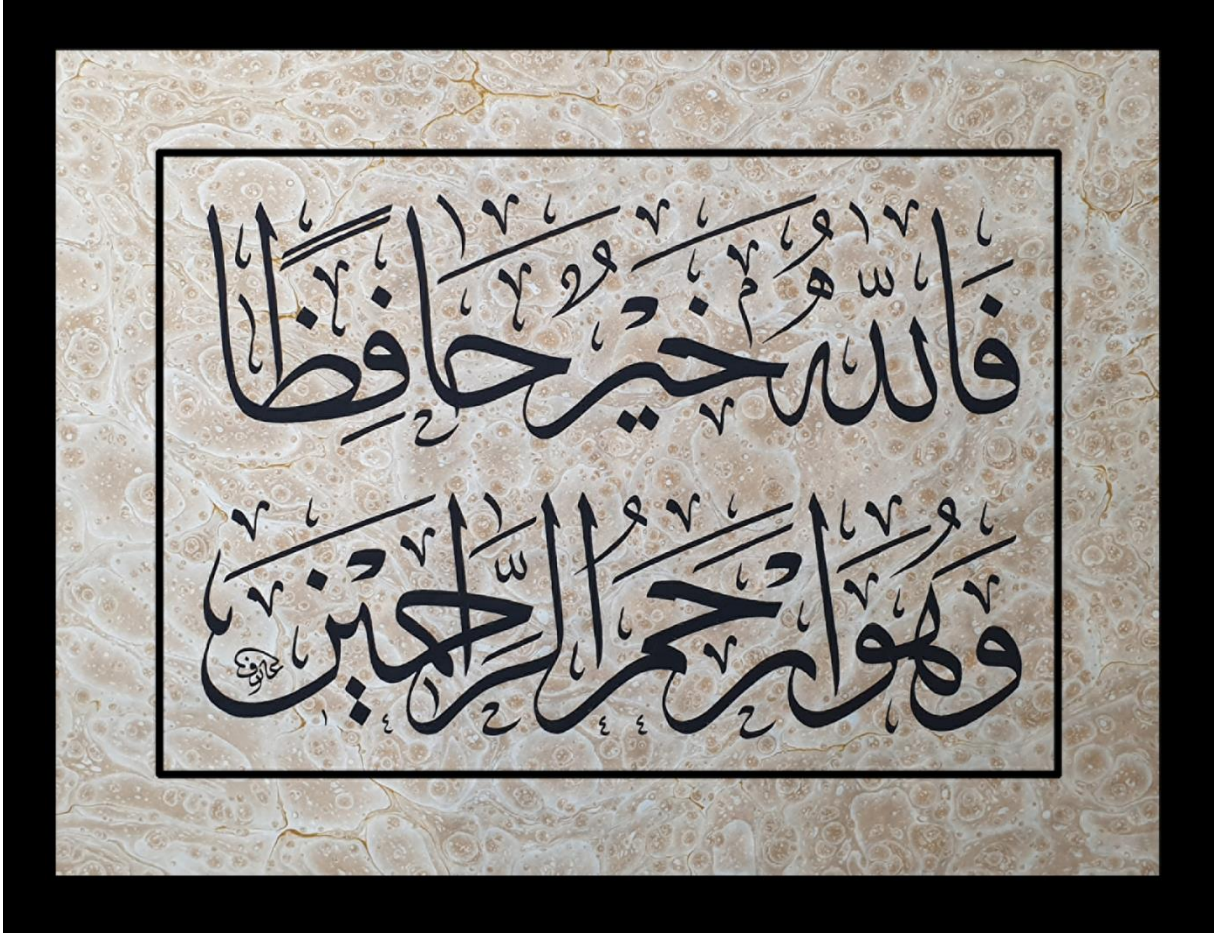 فَاللّٰهُ خَيْرٌ حَافِظًا
وَهُوَ اَرْحَمُ الرَّاحِمِينَ
١٤٤٤